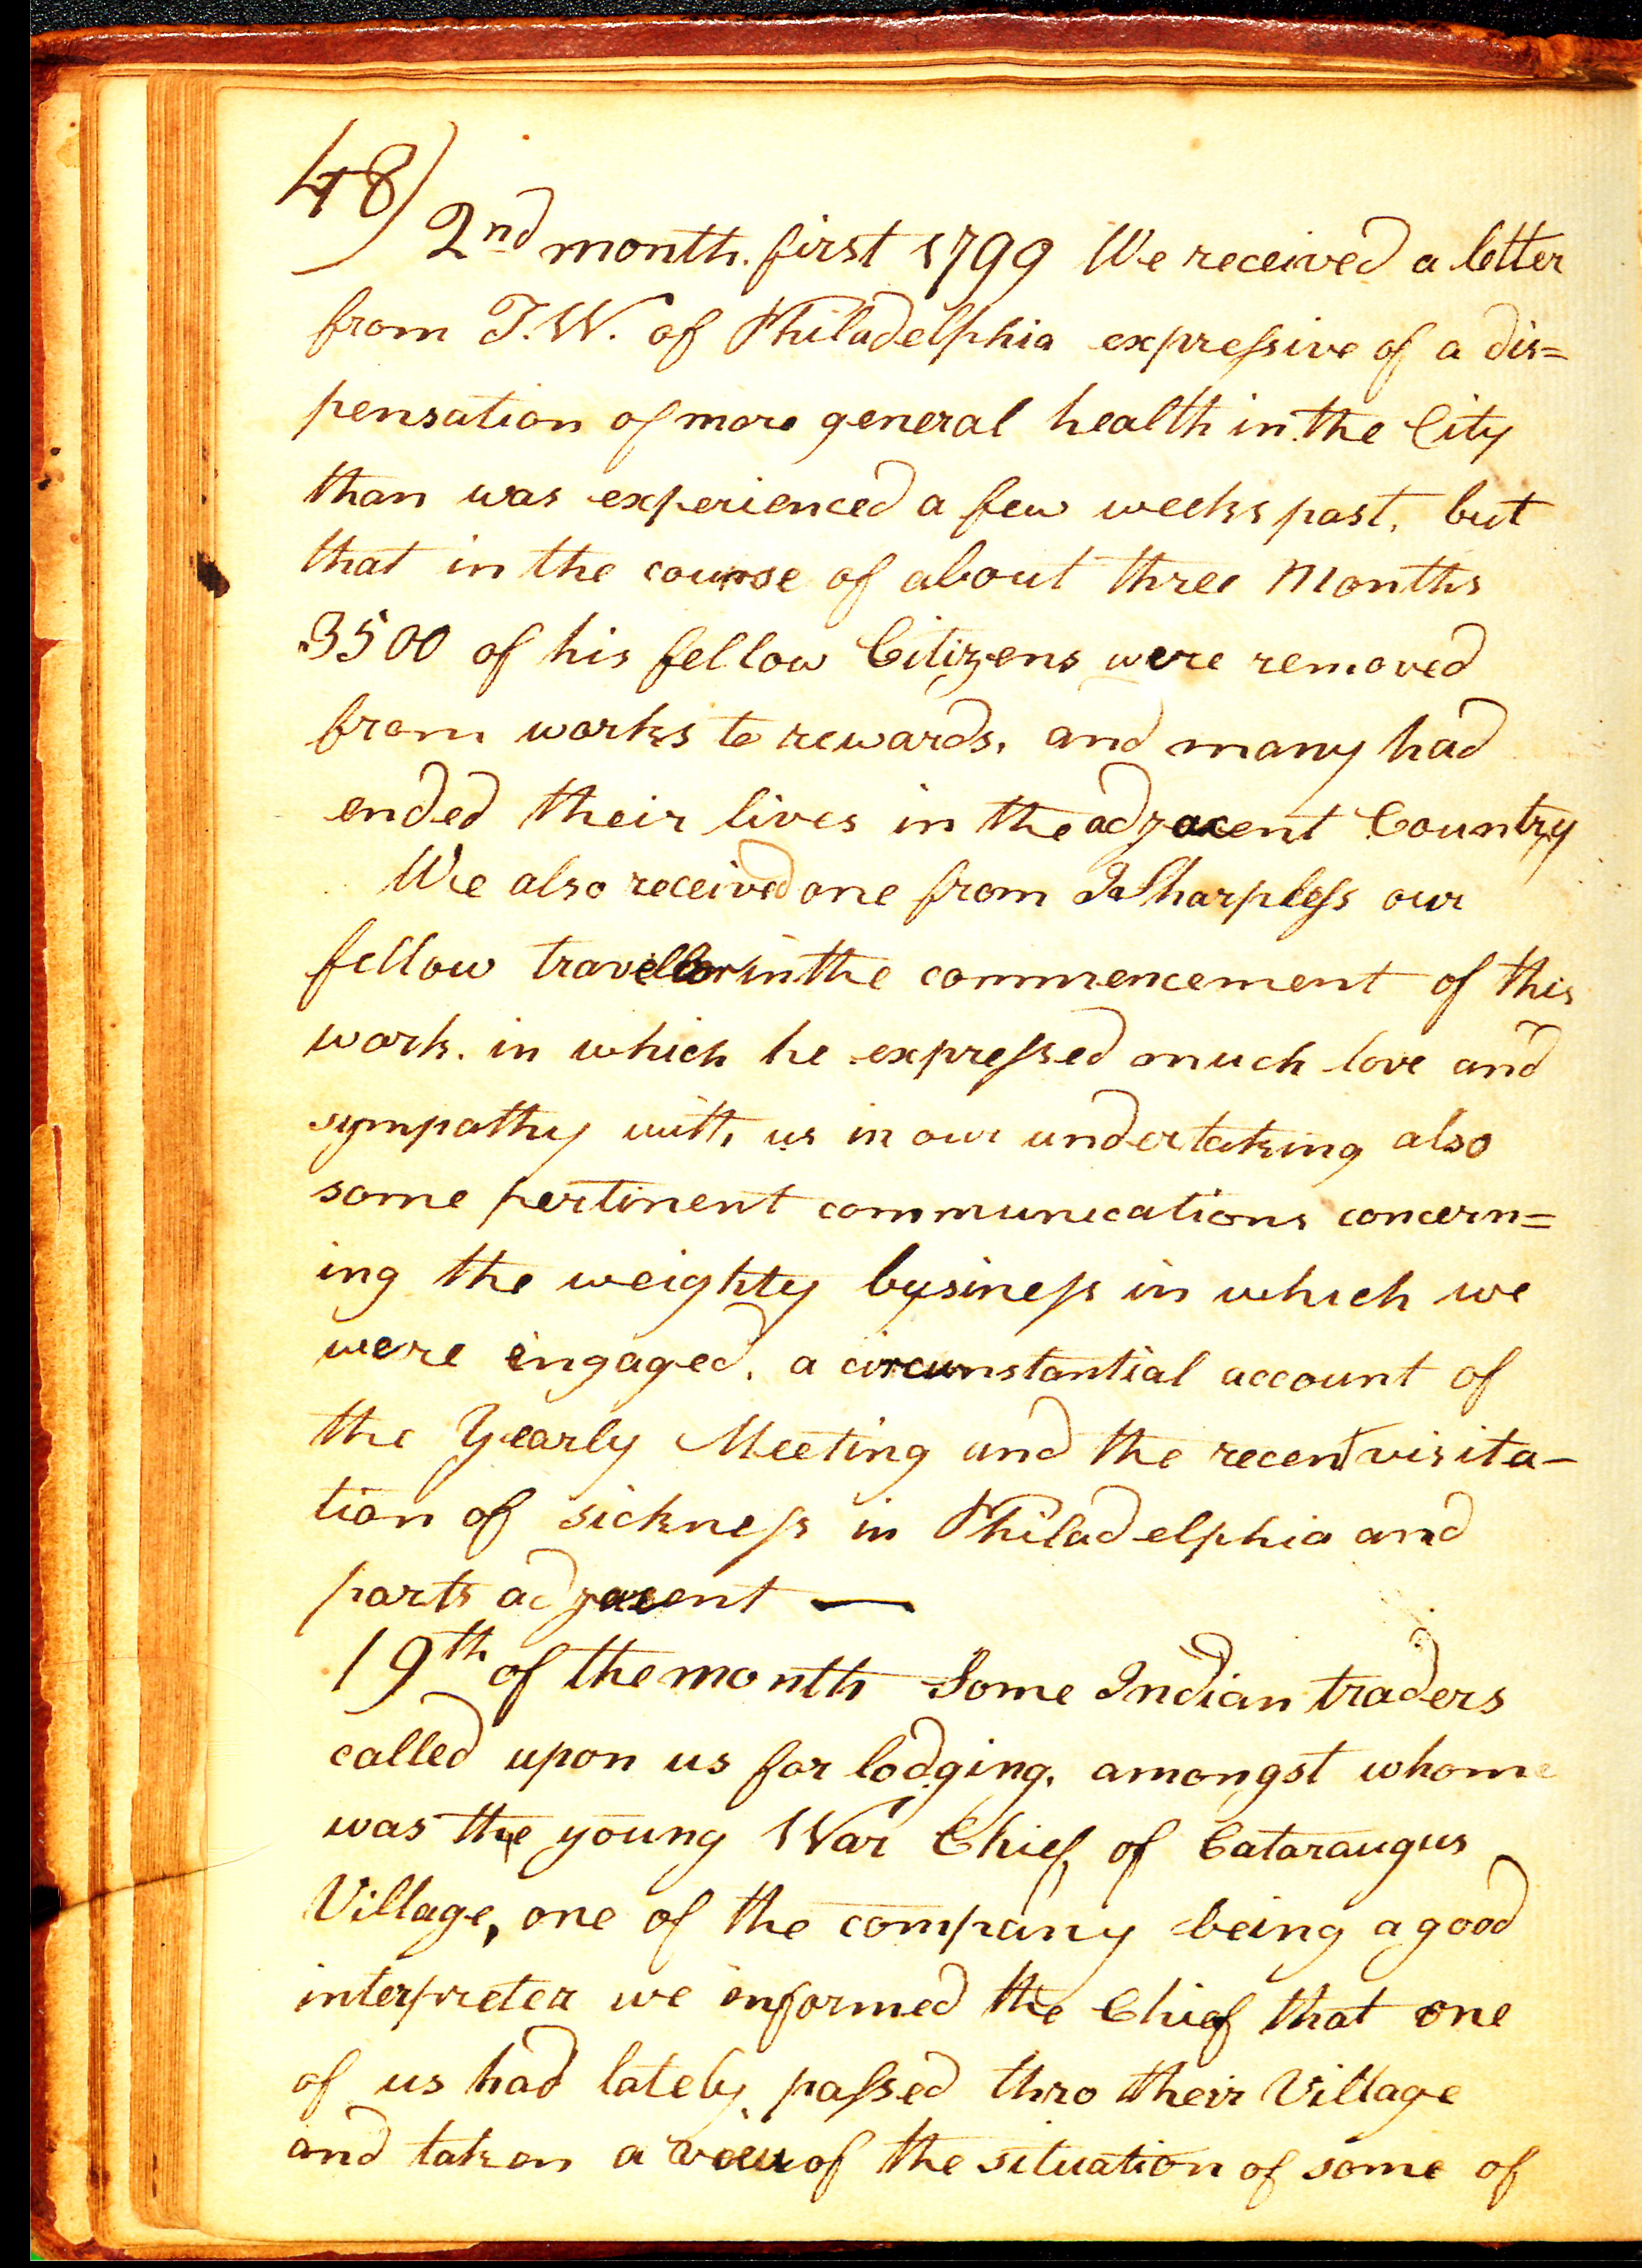 48)
2nd month. first 1799 We received a letter
from T.W. of Philadelphia expreſsive of a dis=
pensation of more general health in the City
than was experienced a few weeks past, but
that in the course of about three Months
3500 of his fellow Citizens were removed
from works to rewards, and many had
ended their lives in the adjacent Country
We also received one from Sharpleſs our
fellow traveller in the commencement of this
work. in which he expreſsed much love and
sympathy with us in our undertaking also
some pertinent communications concern=
ing the weighty busineſs in which we
were engaged, a circumstantial account of
the Yearly Meeting and the recent visita-
tion of sickneſs in Philadelphia and
parts adjacent —
19th of the month Some Indian traders
called upon us for lodging, amongst whom
was the young War Chief, of Cataraugus
Village, one of the company being a good
interpreter we informed the Chief that one
of us had lately paſsed thro their Village
and taken a view of the situation of some of